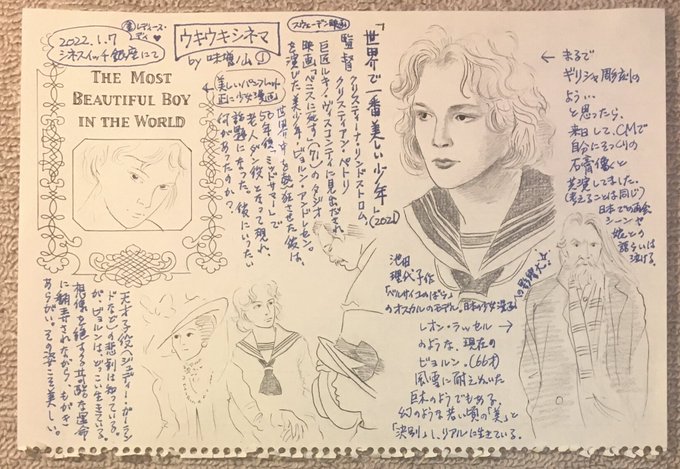 2022.1.7
シネスイッチ銀座にて
㊎レディース・デイ♥
ウキウキシネマ
by
①
THE MOST
BEAUTIFUL BOY
IN THE WORLD
←美しいパンフレット
正に少女漫画
スウェーデン映画
「世界で一番美しい少年」(2021)
監督 クリスティーナ・リンドストロム、
クリスティアン・ペトリ
巨匠ルキノ・ヴィスコンティに見出だされ
映画「ベニスに死す」('71)のタジオ
を演じた美少年、ビョルン・アンドレセン。
世界中を魅了させた彼は、
50年後、ミッドサマーで
老人ダン役となって現れ、
話題になった。彼にいったい
何があったのか?
← まるで
ギリシャ彫刻の
よう…
と思ったら、
来日して、CMで
自分にそっくりの
石膏像と
共演してました。
(考えることは同じ)
日本での再会
シーンや
娘との
語らいは
泣ける。
池田
理代子作
「ベルサイユのばら」
のオスカルのモデル。日本の少女漫画
レオン・ラッセル →
のような、現在の
ビョルン。(66才)
風雪に耐えぬいた
巨木のようでもある。
幻のような若い頃の「美」と
「決別」し、リアルに生きている。
天才子役(ジュディ・ガーラン
ドなど)の悲劇は知っている。
が、ビョルンは、どっこい生きている。
想像を絶する過酷な運命
に翻弄されながら、もがき
あらがい。その姿こそ美しい。